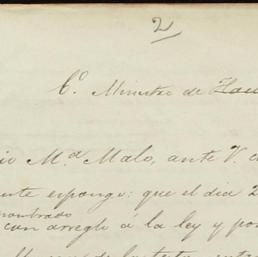 2
C. Ministro de Hac
io M.a Malo, ante V. c
ente espongo: que el dia 2
nombrado
con arreglo á la ley y por